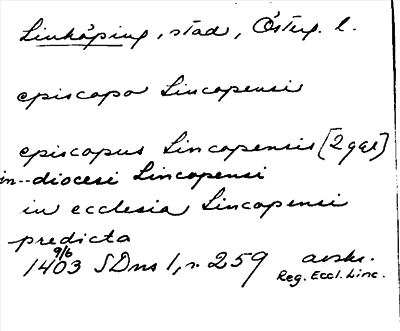 Linköping, stad, Österg. l.
episcopo Lincopensi
episcopus Lincopensis [2 ggr]
in - diocesi Lincopensi
in ecclesia Lincopensi
predicta
9/6
1403 SDns 1, s. 259 avskr.
Reg. Eccl. Linc.